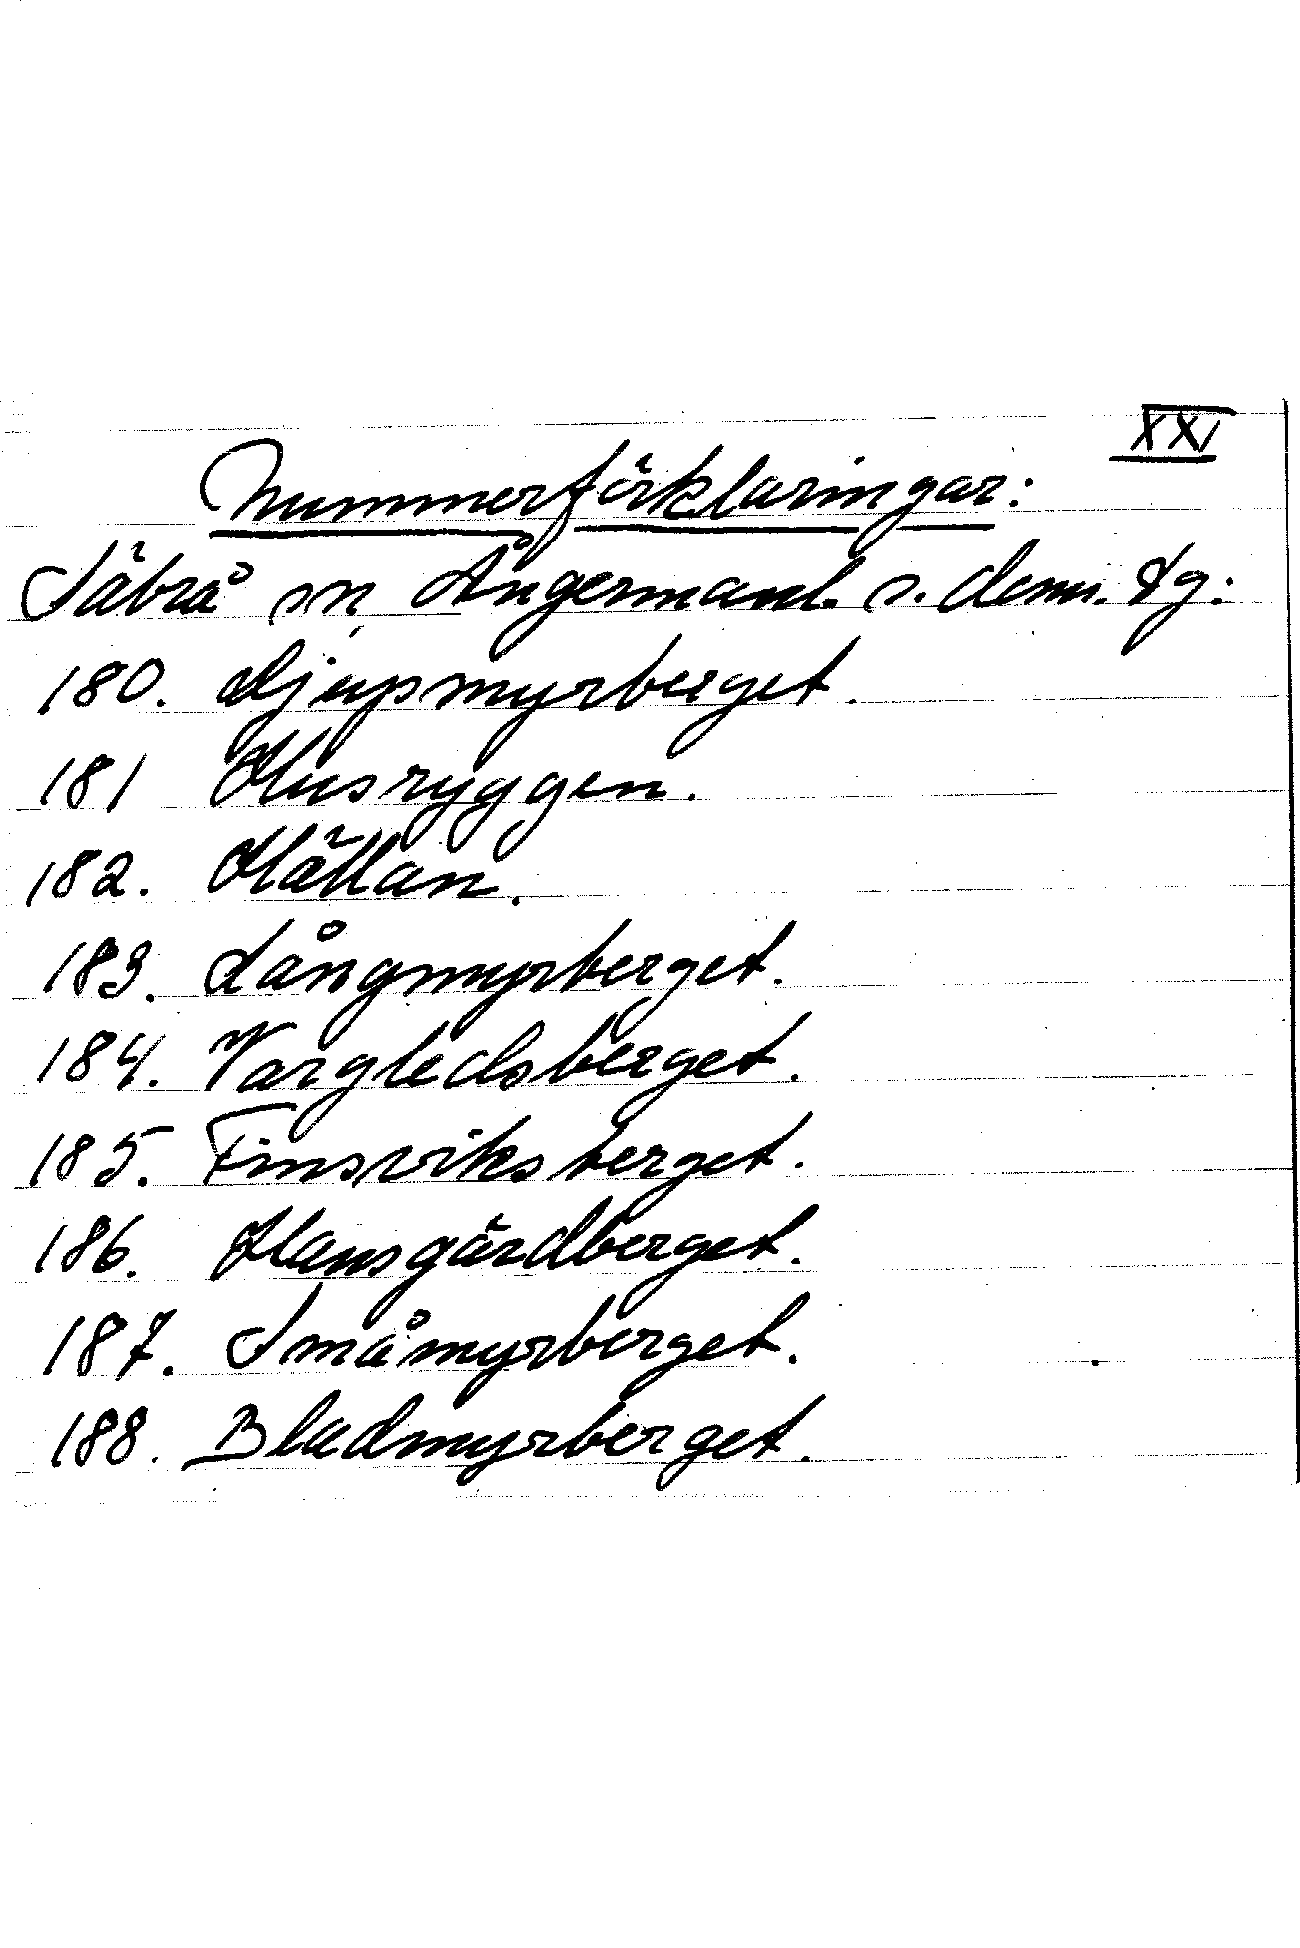 XXV
Nummerförklaringar:
Säbrå sn, Ångermanl. s. doms. dg:
180. Djupsmyrberget.
181 Husryggen.
182. Hällan.
183. Långmyrberget.
184. Vargledsberget.
185. Finsviksberget.
186. Hansgårdberget.
187. Småmyrberget.
188. Bladmyrberget.